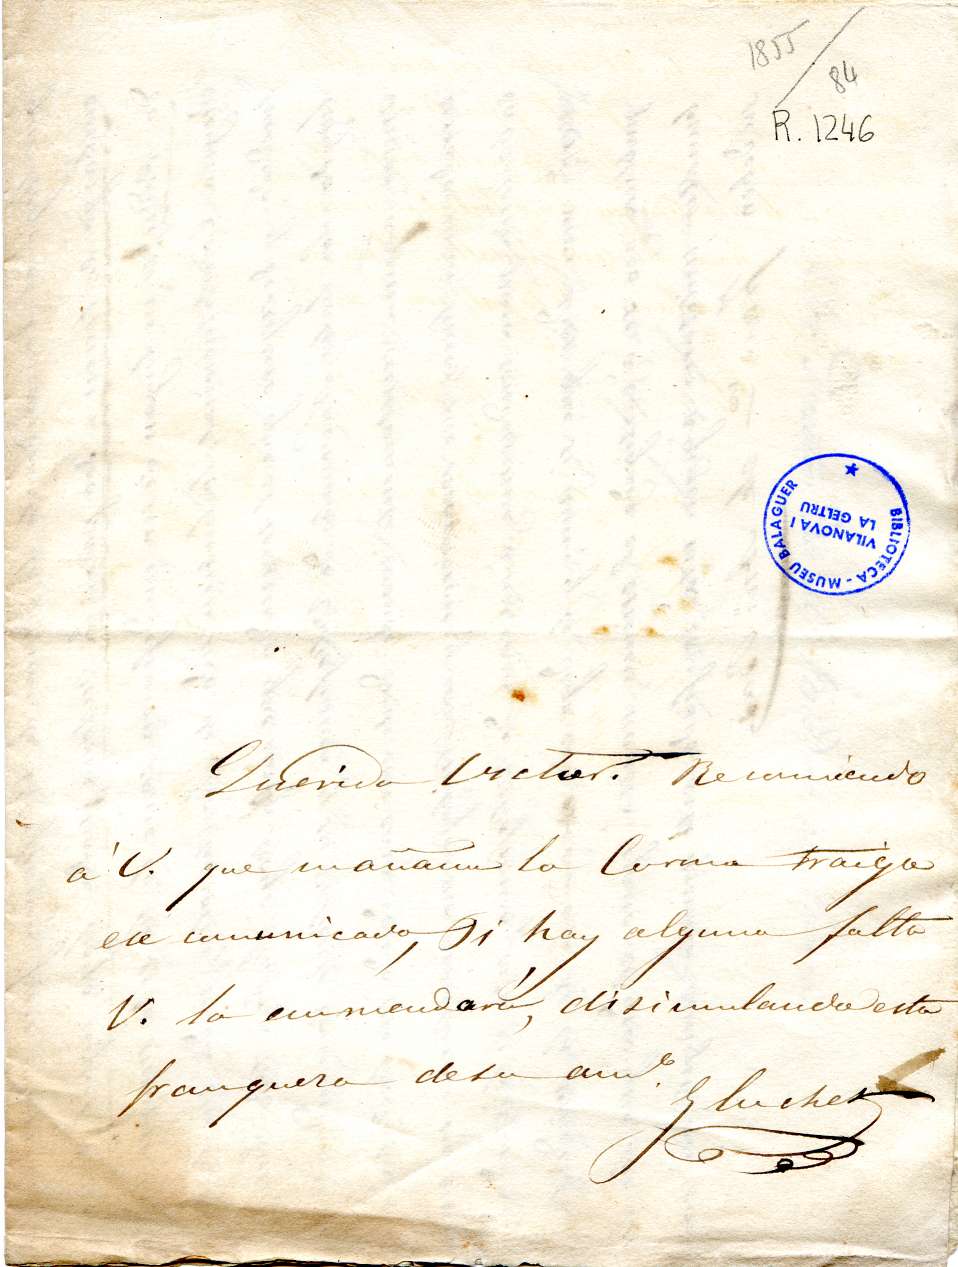 1855/84
R. 1246
BIBLIOTECA - MUSEU BALAGUER
VILANOVA I
LA GELTRU
Querido Victor. Recomiendo
á V. que mañana la Corona traiga
ese comunicado, Si hay alguna falta
V. la enmendará, disimulando esta
franqueza de su am.º